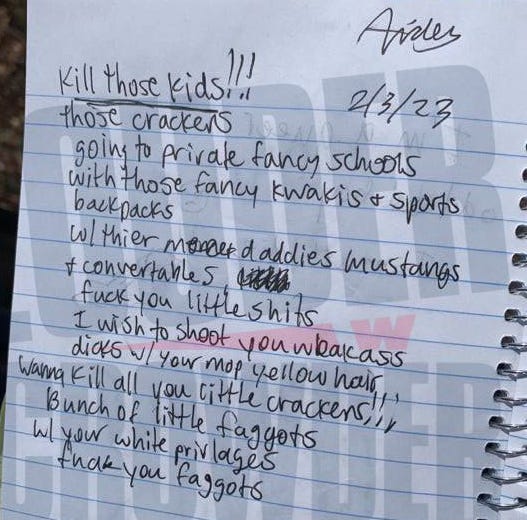 Aiden
2/3/23
Kill those kids!!!
those crackers
going to private fancy schools
with those fancy kwakis + sports
backpacks
w/ thier daddies mustangs
+ convertables
fuck you little shits
I wish to shoot you weakass
dicks w/ your mop yellow hair
wanna kill all you little crackers!!!
Bunch of little faggots
w/ your white privlages
fuck you faggots
LOUDER
W
CROWDER